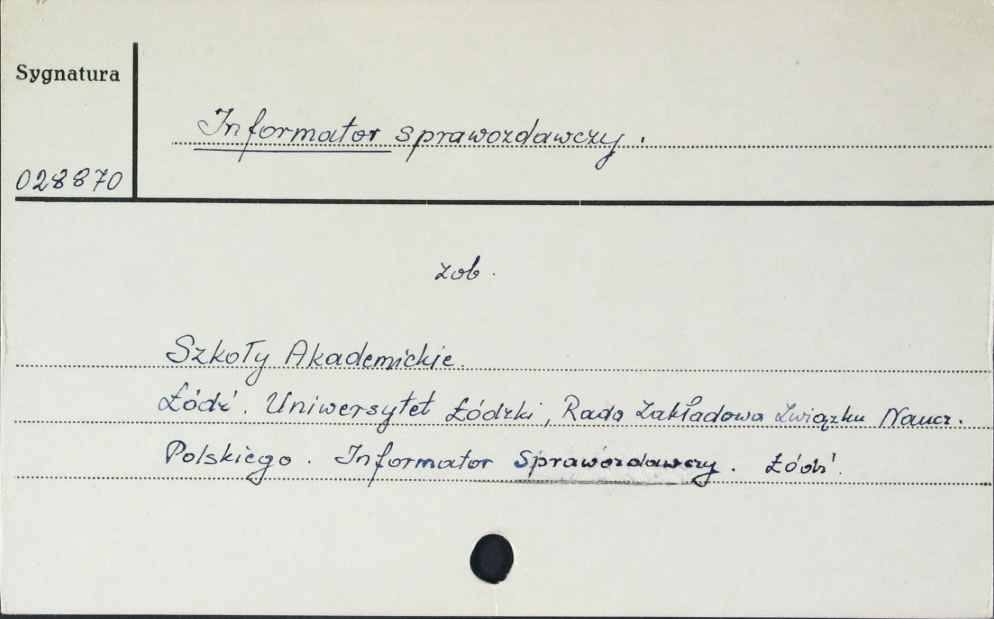 Sygnatura
Informator sprawozdawczy.
028870
zob.
Szkoły Akademickie.
Łódź. Uniwersytet Łódzki, Rada Zakładowa Związku Naucz.
Polskiego. Informator Sprawozdawczy. Łódź.